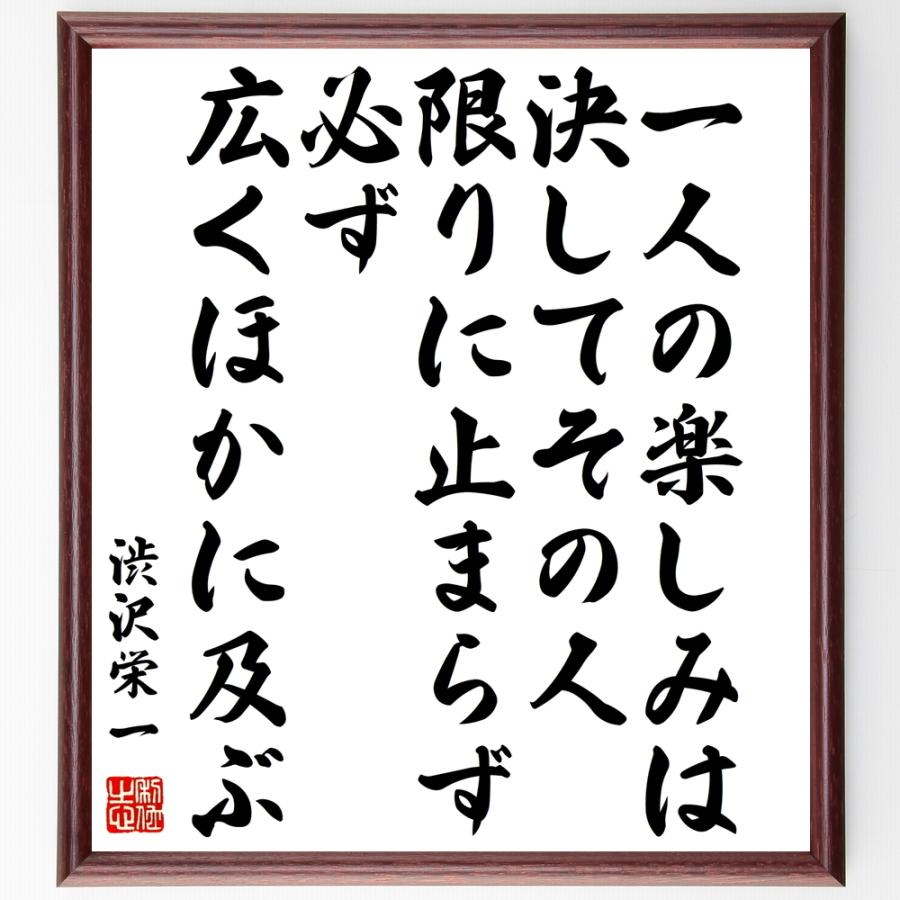 一人の楽しみは
決してその人
限りに止まらず
必ず
広くほかに及ぶ
渋沢栄一